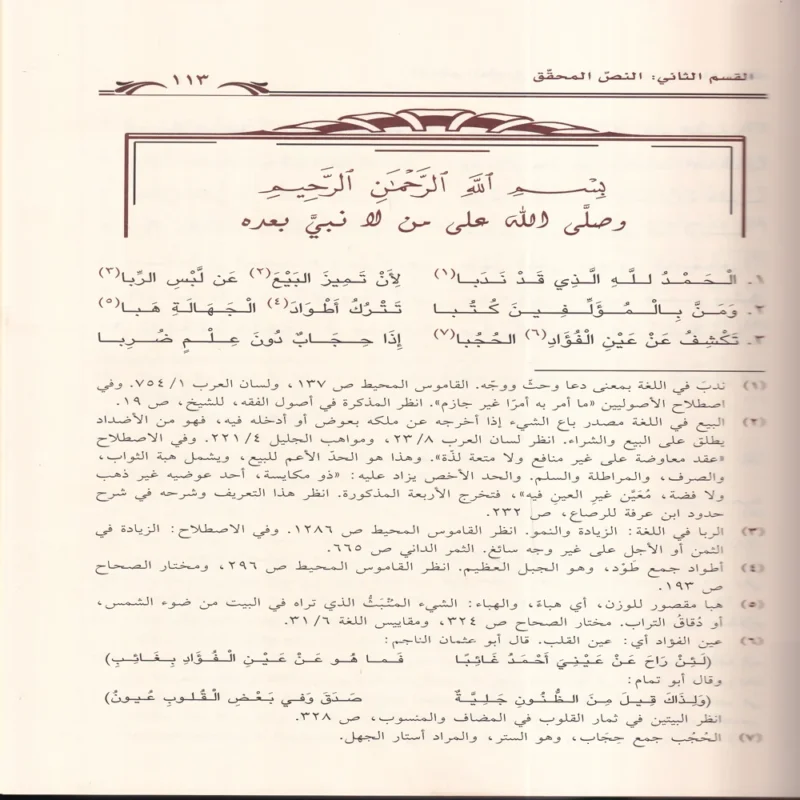 القسم الثاني: النصّ المحقّق
١١٣
بِسْمِ ٱللَّهِ ٱلرَّحْمَٰنِ ٱلرَّحِيمِ
وصلَّى الله على من لا نبيَّ بعده
١. الْحَمْدُ للَّهِ الَّذِي قَدْ نَدَبا(١) لِأنْ تَمِيزَ البَيْعَ(٢) عَن لَّبْسِ الرِّبا(٣)
٢. وَمَنَّ بِالْمُؤَلِّفِينَ كُتُبا تَتْرُكُ أطْوَادَ(٤) الْجَهَالَةِ هَبا(٥)
٣. تَكْشِفُ عَنْ عَيْنِ الْفُؤَادِ(٦) الحُجُبا(٧) إذَا حِجَابٌ دُونَ عِلْمٍ ضُرِبا
(١) ندبَ في اللغة بمعنى دعا وحثّ ووجّه. القاموس المحيط ص ١٣٧، ولسان العرب ٧٥٤/١. وفي
اصطلاح الأصوليين «ما أمر به أمرًا غير جازم». انظر المذكرة في أصول الفقه، للشيخ، ص ١٩.
(٢) البيع في اللغة مصدر باع الشيء إذا أخرجه عن ملكه بعوض أو أدخله فيه، فهو من الأضداد
يطلق على البيع والشراء. انظر لسان العرب ٢٣/٨، ومواهب الجليل ٢٢١/٤. وفي الاصطلاح
«عقد معاوضة على غير منافع ولا متعة لذّة». وهذا هو الحدّ الأعم للبيع، ويشمل هبة الثواب،
والصرف، والمراطلة والسلم. والحد الأخص يزاد عليه: «ذو مكايسة، أحد عوضيه غير ذهب
ولا فضة، مُعَيَّن غير العين فيه»، فتخرج الأربعة المذكورة. انظر هذا التعريف وشرحه في شرح
حدود ابن عرفة للرصاع، ص ٢٣٢.
(٣) الربا في اللغة: الزيادة والنمو. انظر القاموس المحيط ص ١٢٨٦. وفي الاصطلاح: الزيادة في
الثمن أو الأجل على غير وجه سائغ. الثمر الداني ص ٦٦٥.
(٤) أطواد جمع طَوْد، وهو الجبل العظيم. انظر القاموس المحيط ص ٢٩٦، ومختار الصحاح
ص ١٩٣.
(٥) هبا مقصور للوزن، أي هباءً، والهباء: الشيء المنْبَثُّ الذي تراه في البيت من ضوء الشمس،
أو دُقاقُ التراب. مختار الصحاح ص ٣٢٤، ومقاييس اللغة ٣١/٦.
(٦) عين الفؤاد أي: عين القلب. قال أبو عثمان الناجم:
(لَئِنْ رَاحَ عَنْ عَيْنِيَ أحْمَدُ غَائِبًا فَما هُو عَنْ عَيْنِ الْفُؤَادِ بِغَائِبِ)
وقال أبو تمام:
(وَلِذَاكَ قِيلَ مِنَ الظُّنُونِ جَلِيَّةٌ صَدَقَ وَفي بَعْضِ الْقُلوبِ عُيونُ)
انظر البيتين في ثمار القلوب في المضاف والمنسوب، ص ٣٢٨.
(٧) الحُجُب جمع حِجَاب، وهو الستر، والمراد أستار الجهل.